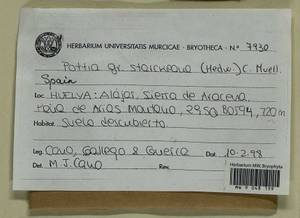 HERBARIUM UNIVERSITATIS MURCICAE - BRYOTHECA - N.º 7930
Pottia gr. starckeana (Hedw.) C. Muell.
Spain
Loc. HUELVA: Alájar, Sierra de Aracena,
Peña de Arias Montano, 29S QB0594, 720 m
Habitat. Suelo descubierto
Leg. Cano, Gallego & Guerra Dat. 10-2-98
Det. M.J. Cano Rev.
Herbarium MW, Bryophyta